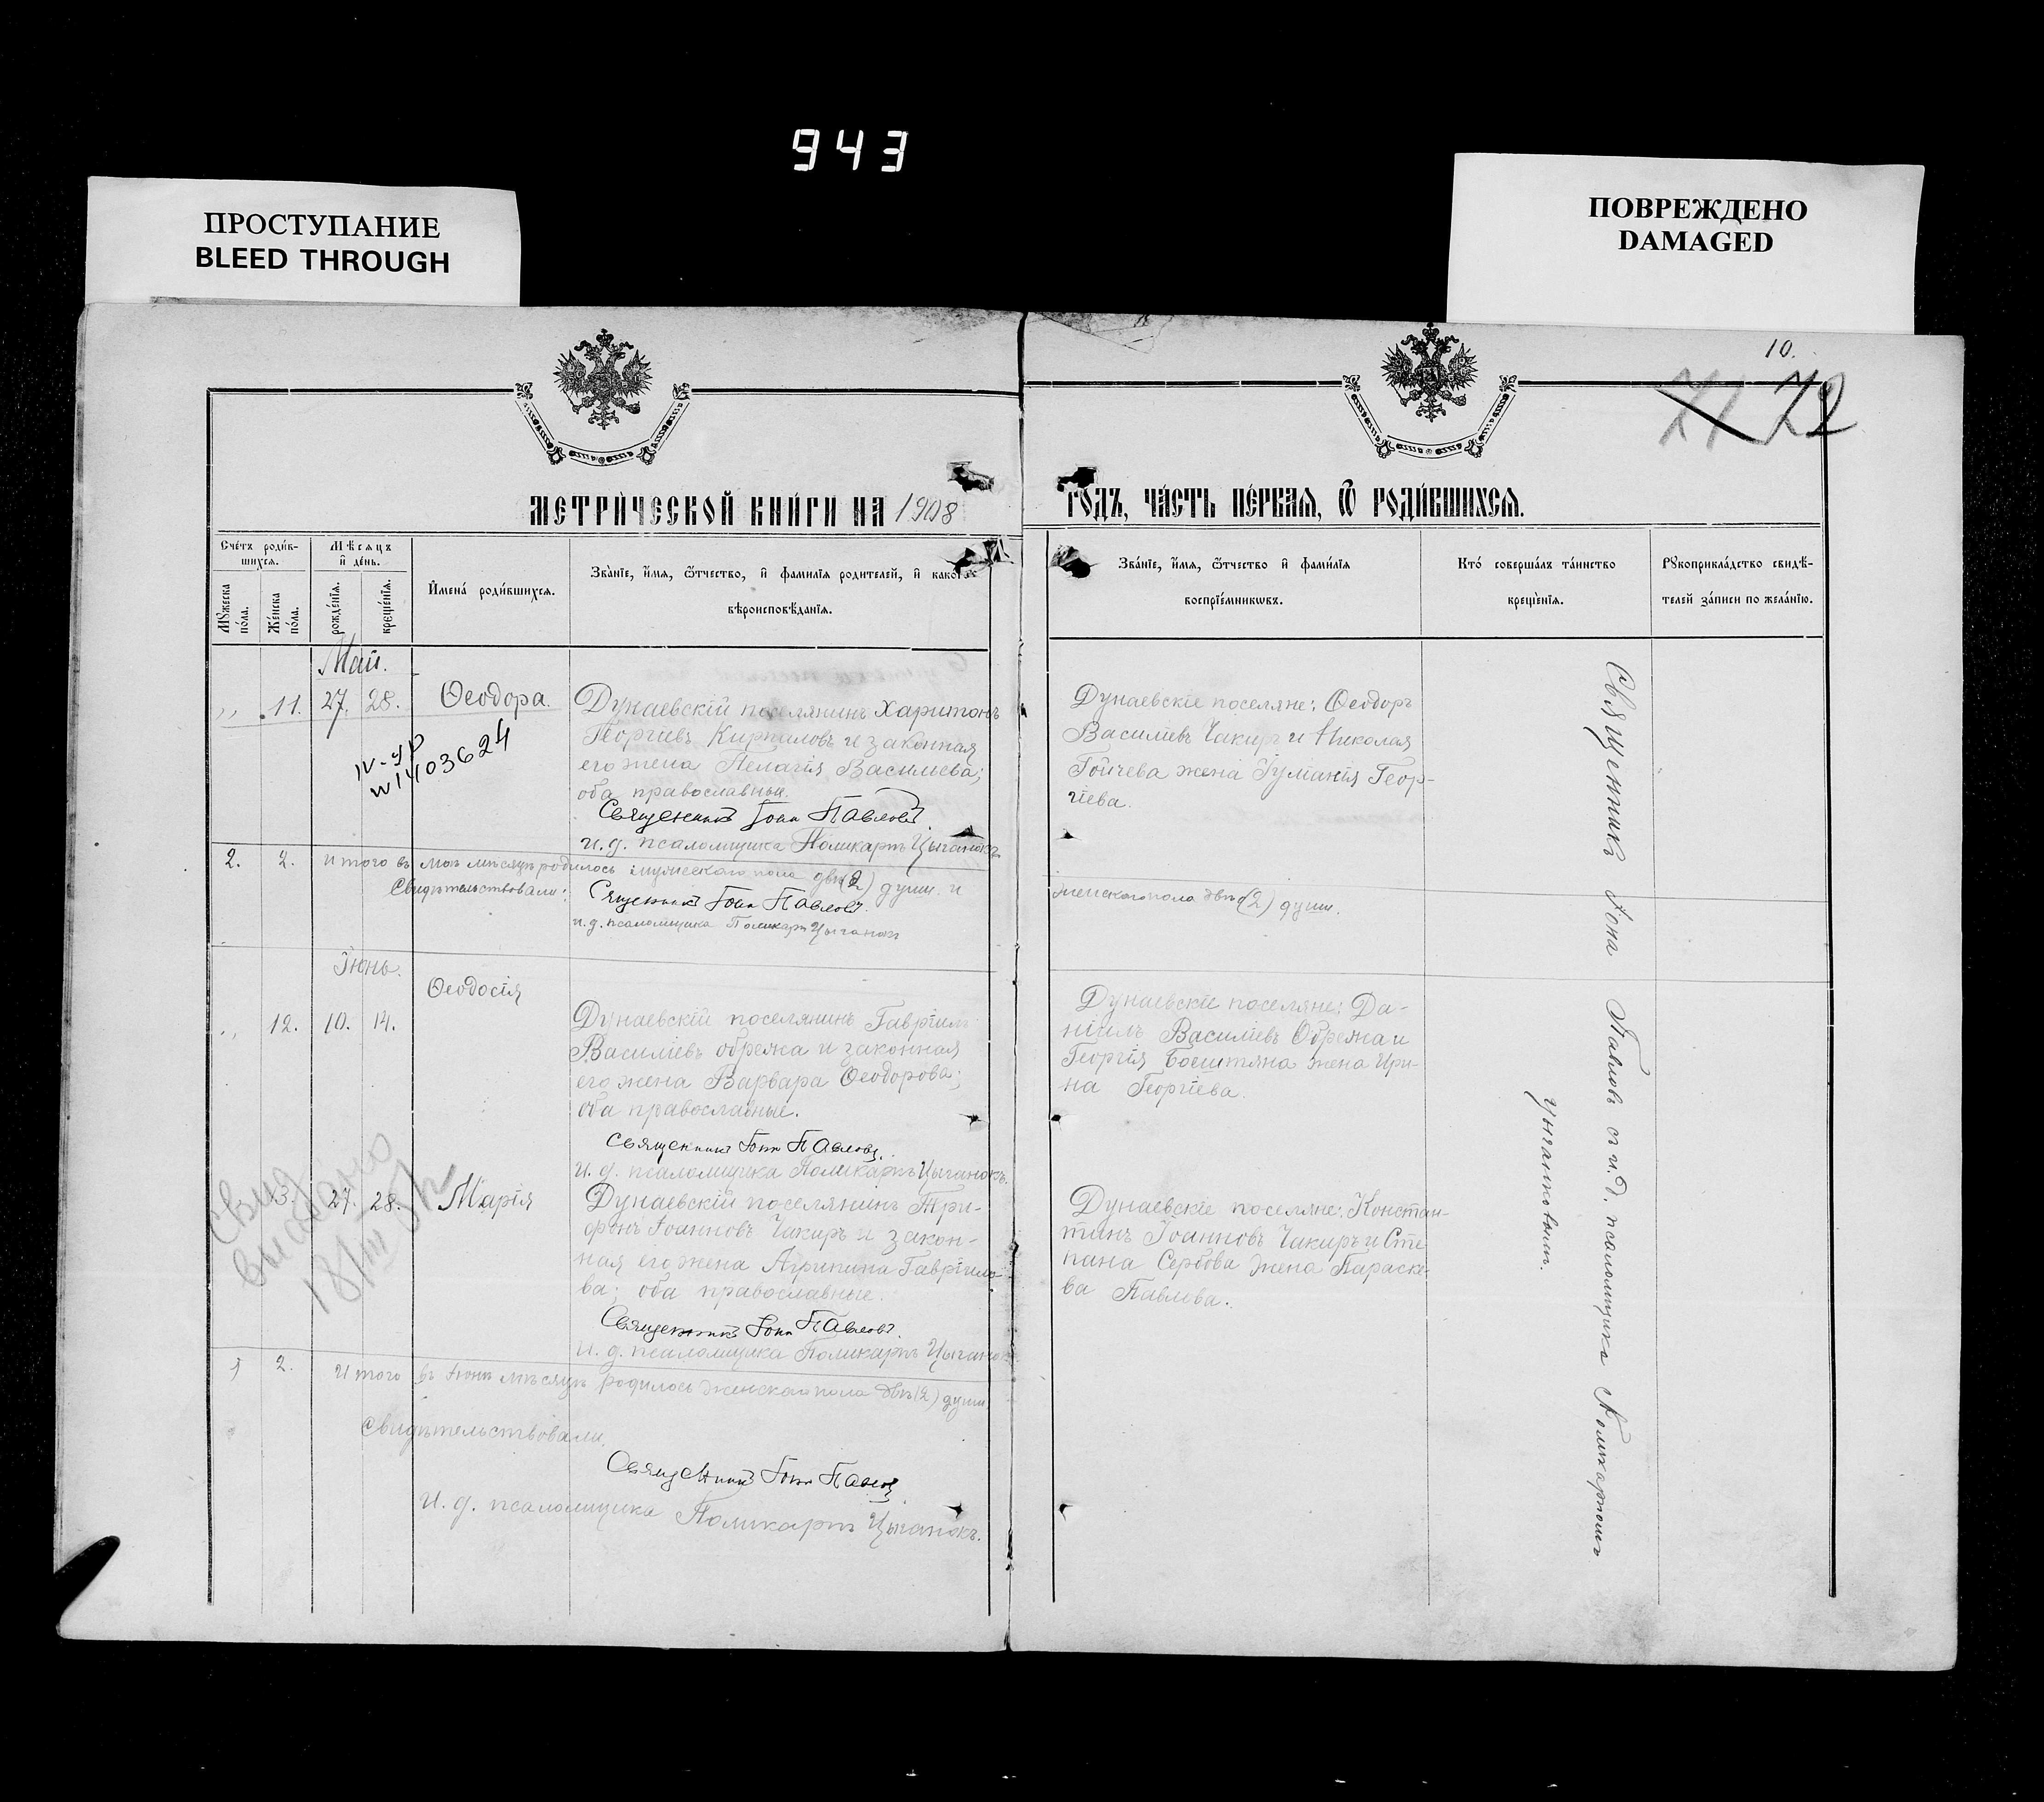 943
ПРОСТУПАНИЕ
BLEED THROUGH
ПОВРЕЖДЕНО
DAMAGED
10.
71 72
МЕТРИ́ЧЕСКОЙ КНИ́ГИ НА 1908
ГОДЪ, ЧА́СТЬ ПЕ́РВАѦ, Ѿ РОДИ́ВШИХСѦ.
Сче́тъ роди́в-
шихсѧ.
Мѣ́сѧцъ
и҆ де́нь.
Мꙋ́жеска по́ла.
Же́нска по́ла.
рожде́нїѧ.
креще́нїѧ.
И҆мена̀ роди́вшихсѧ.
Зва́нїе, и҆́мѧ, ѻ҆́тчество, и҆ фами́лїѧ роди́телей, и҆ како́гѡ
вѣроисповѣ́данїѧ.
Зва́нїе, и҆́мѧ, ѻ҆́тчество и҆ фами́лїѧ
воспрїе́мникѡвъ.
Кто̀ соверша́лъ та́инство
креще́нїѧ.
Рꙋкоприкла́дство свидѣ́-
телей за́писи по жела́нїю.
Май.
,, 11. 27. 28. Ѳеодора.
Дунаевскій поселянинъ Харитонъ
Георгіевъ Кирпаловъ и законная
его жена Пелагія Васильева;
оба православныи.
Священникъ Іоан Павловъ.
и.д. псаломщика Поликарпъ Цыганокъ
Дунаевскіе поселяне: Ѳеодоръ
Василіевъ Чакиръ и Николая
Гойчева жена Іуліанія Геор-
гіева.
2. 2. Итого въ мае мѣсяцѣ родилось мужескаго пола двѣ (2) души и
женскаго пола двѣ (2) души.
Свидѣтельствовали:
Священникъ Іоан Павловъ.
и.д. псаломщика Поликарп Цыганок
Іюнь.
,, 12. 10. 14. Ѳеодосія
Дунаевскій поселянинъ Гавріилъ
Василіевъ обрежа и законная
его жена Варвара Ѳеодорова;
оба православные.
Священникъ Іоан Павловъ.
и. д. псаломщика Поликарпъ Цыганокъ.
Дунаевскіе поселяне: Да-
ніилъ Василіевъ Обрежа и
Георгія Боештяна жена Ири-
на Георгіева.
13. 27. 28. Марія
Дунаевскій поселянинъ Три-
фонъ Іоанновъ Чакиръ и закон-
ная его жена Агрипина Гавріило-
ва; оба православные.
Священникъ Іоан Павловъ.
и. д. псаломщика Поликарпъ Цыганок
Дунаевскіе поселяне: Констан-
тинъ Іоанновъ Чакиръ и Сте-
пана Сербова жена Параске-
ва Павлова.
2. Итого въ Іюнѣ мѣсяцѣ родилось женскаго пола двѣ (2) души
Свидѣтельствовали
Священникъ Іоан Павлов
И. д. псаломщика Поликарпъ Цыганокъ.
Священникъ Іона Павловъ съ и.д. псаломщика Поликарпомъ
Цыганковымъ.
w1403624
Свид
выдано